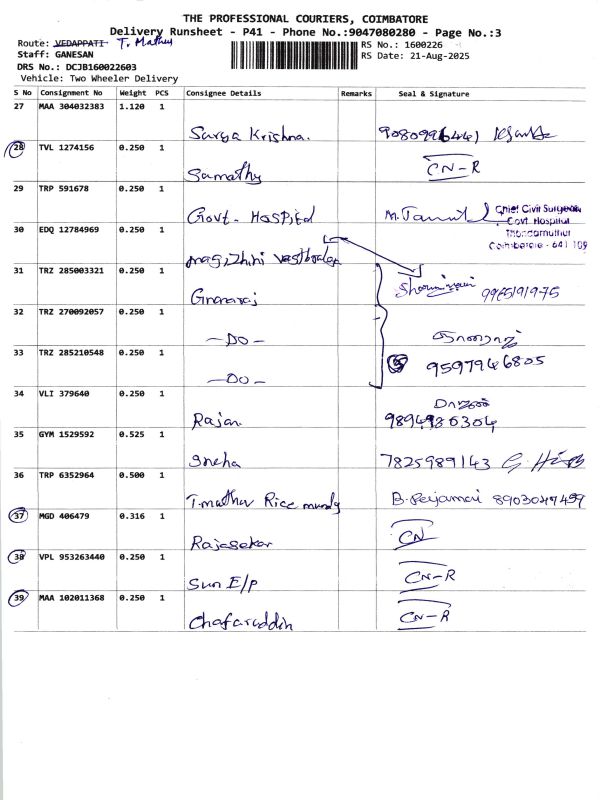 THE PROFESSIONAL COURIERS, COIMBATORE
Delivery Runsheet - P41 - Phone No.:9047080280 - Page No.:3
Route: VEDAPPATI T. Mathur
RS No.: 1600226
Staff: GANESAN
RS Date: 21-Aug-2025
DRS No.: DCJB160022603
Vehicle: Two Wheeler Delivery
S No Consignment No Weight PCS Consignee Details Remarks Seal & Signature
27 MAA 304032383 1.120 1
Surya Krishna.
28 TVL 1274156 0.250 1
Samathy CN-R
29 TRP 591678 0.250 1
Govt. Hospital
Chief Civil Surgeon
Govt. Hospital
Thondamuthur
Coimbatore - 641 109
30 EDQ 12784969 0.250 1
31 TRZ 285003321 0.250 1
Gnanaraj 9965191975
32 TRZ 270092057 0.250 1
-DO-
33 TRZ 285210548 0.250 1
-DO- 9597946805
34 VLI 379640 0.250 1
Rajan
35 GYM 1529592 0.525 1
Sneha 7825989143
36 TRP 6352964 0.500 1
T.mathur Rice mundy
37 MGD 406479 0.316 1
Rajasekar CN
38 VPL 953263440 0.250 1
Sun E/P CN-R
39 MAA 102011368 0.250 1
Chafaruddin CN-R